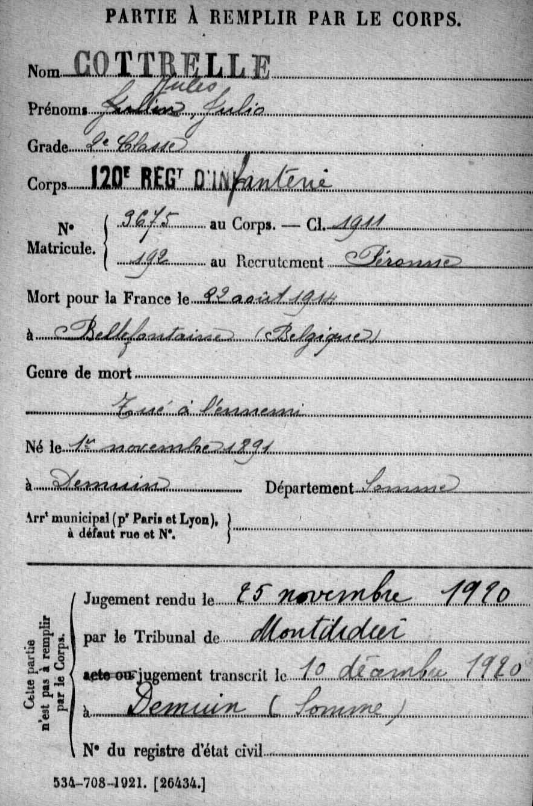 PARTIE À REMPLIR PAR LE CORPS.
Nom COTTRELLE
Jules
Prénoms Julien, Julio
Grade 2e Classe
Corps 120E REGT D'INfanterie
No Matricule. 3675 au Corps. — Cl. 1911
192 au Recrutement Péronne
Mort pour la France le 22 août 1914
à Bellefontaine (Belgique)
Genre de mort
Tué à l'ennemi
Né le 1er novembre 1891
à Demuin Département Somme
Arrt municipal (pr Paris et Lyon),
à défaut rue et No.
Cette partie
n'est pas à remplir
par le Corps.
Jugement rendu le 25 novembre 1920
par le Tribunal de Montdidier
acte ou jugement transcrit le 10 décembre 1920
à Demuin (Somme)
No du registre d'état civil
534-708-1921. [26434.]